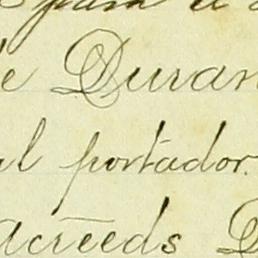 para el
de Duran
al portador.
acreeds D